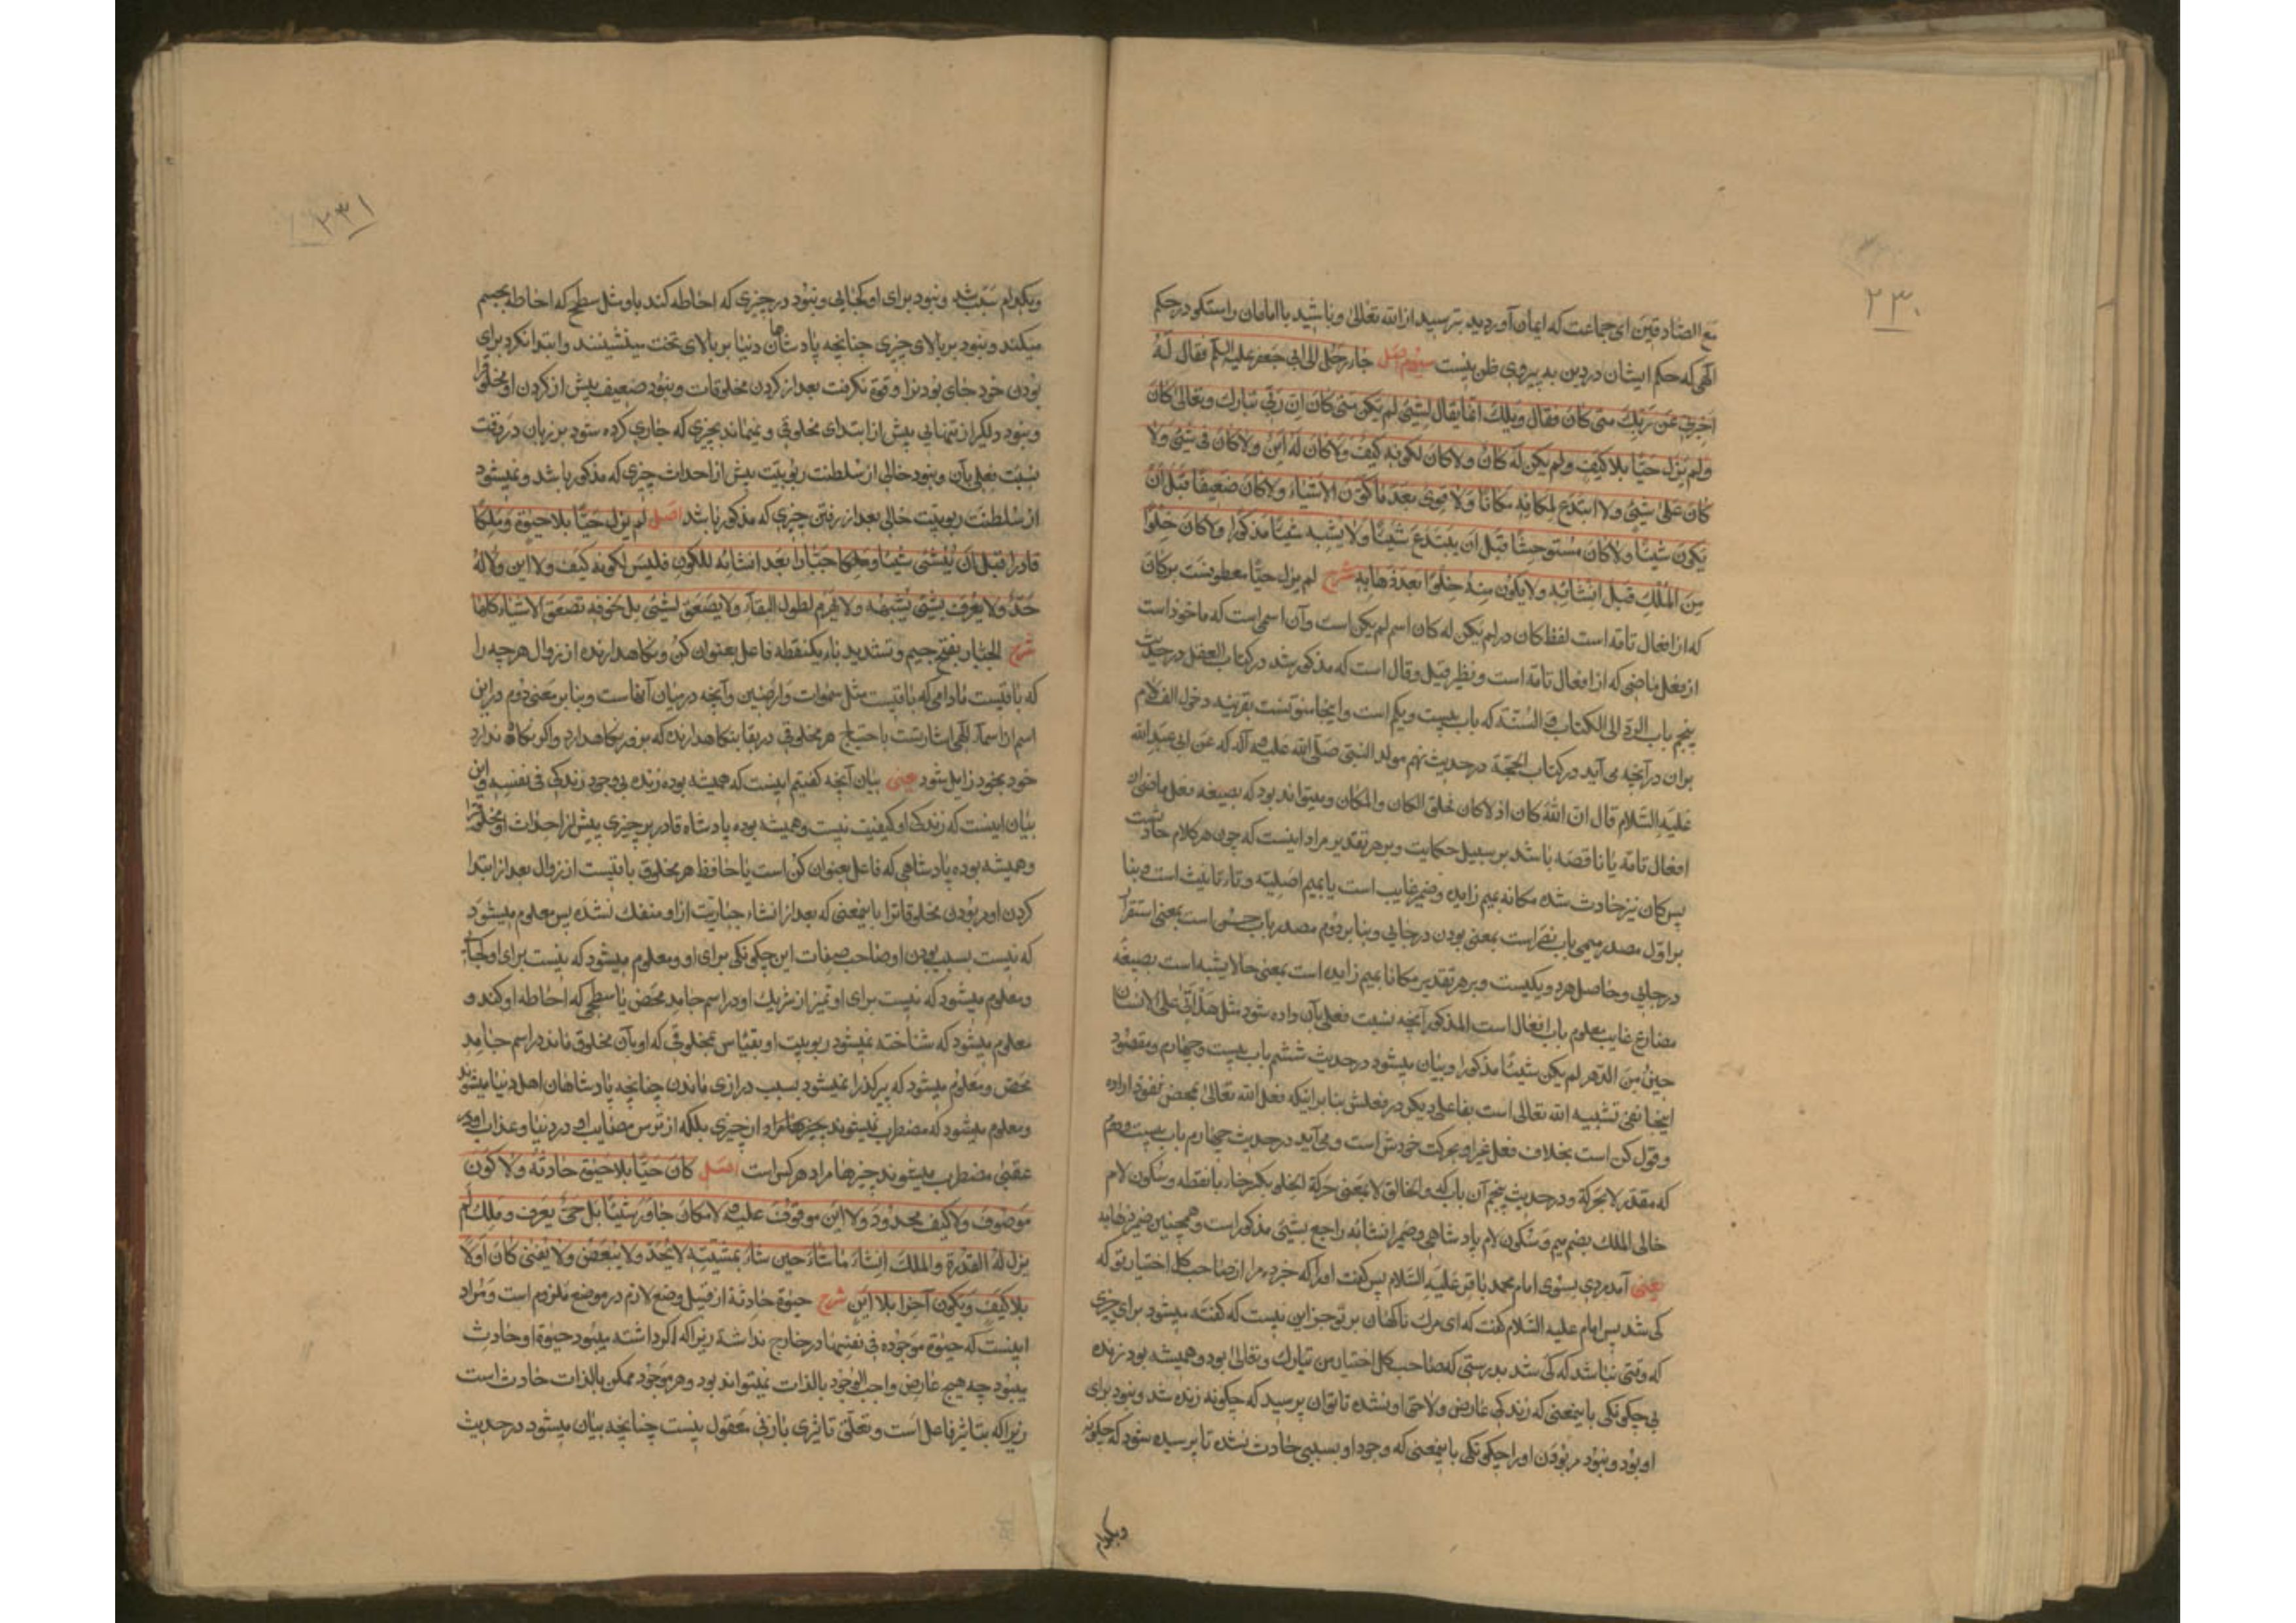 ۲۳۰
مع الصّادقین ای جماعت که ایمان آوردید بترسید از الله تعالی و باشید با امامان راستگو در حکم
الهی که حکم ایشان در دین به پیروی ظن نیست سیوم اصل جاء رجل الی ابی جعفر علیه السلام فقال له
اخبرنی عن ربک متی کان فقال ویلک انما یقال لشیء لم یکن متی کان ان ربی تبارک و تعالی کان
ولم یزل حیّا بلا کیف ولم یکن له کان ولا کان لکونه کیف ولا کان له این ولا کان فی شیء ولا
کان علی شیء ولا ابتدع لمکانه مکانا ولا قوی بعد ما کوّن الاشیاء ولا کان ضعیفا قبل ان
یکون شیئا ولا کان مستوحشا قبل ان یبتدع شیئا ولا یشبه شیئا مذکورا ولا کان خلوا
من الملک قبل انشائه ولا یکون منه خلوا بعد ذهابه شرح لم یزل حیّا معطوفست بر کان
که از افعال تامّه است لفظ کان در لم یکن له کان اسم لم یکن است و آن اسمی است که ماخوذ است
از فعل ماضی که از افعال تامه است و نظیر قیل و قال است که مذکور شد در کتاب العقل در حدیث
پنجم باب الردّ الی الکتاب و السّنّة که باب بیست و یکم است و اینجا منوّنست بقرینه دخول الف لام
بران در آنچه می آید در کتاب الحجّة در حدیث نهم مولد النبی صلّی الله علیه و آله که عن ابی عبد الله
علیه السّلام قال ان الله کان اذ لا کان فخلق الکان والمکان و میتواند بود که بصیغه فعل ماضی از
افعال تامّه یا ناقصه باشد بر سبیل حکایت و بر هر تقدیر مراد اینست که چون هر کلام حادثست
پس کان نیز حادث شده مکانه بمیم زایده و ضمیر غایب است یا بمیم اصلیّه و تاء تانیث است و بنا
بر اوّل مصدر میمی باب نصر است بمعنی بودن در جایی و بنا بر دوم مصدر باب حسن است بمعنی استقرار
در جایی و حاصل هر دو یکیست و بر هر تقدیر مکانا بمیم زایده است بمعنی جا لا یشبه است بصیغه
مضارع غایب معلوم باب افعال است المذکور آنچه نسبت فعلی بآن داده شود مثل هل اتی علی الانسان
حین من الدّهر لم یکن شیئا مذکورا و بیان میشود در حدیث ششم باب بیست و چهارم و مقصود
اینجا نفی تشبیه الله تعالی است بفاعلی دیگر در فعلش بنا بر اینکه فعل الله تعالی بمحض نفوذ اراده
و قول کن است بخلاف فعل غیر او بحرکت خودش است و می آید در حدیث چهارم باب بیست و دوم
که مقدّر لا بحرکة و در حدیث پنجم آن باب که و الخالق لا بمعنی حرکة الخلو بکسر خاء با نقطه و سکون لام
خالی الملک بضم میم و سکون لام پادشاهی و ضمیر انشائه راجع بشیء مذکور است و همچنین ضمیر ذهابه
یعنی آمد مردی بسوی امام محمد باقر علیه السّلام پس گفت او را که خبر ده مرا از صاحب کل اختیار تو که
کی شد پس امام علیه السّلام گفت که ای مرگ ناگهان بر تو جز این نیست که گفته میشود برای چیزی
که وقتی نباشد که کی شد بدرستی که صاحب کل اختیار من تبارک و تعالی بود و همیشه بود زنده
بی چگونگی باینمعنی که زندگی عارض و لاحق او نشده تا توان پرسید که چگونه زنده شد و نبود برای
او بود و نبود مر بودن او را چگونگی باینمعنی که وجود او بسببی حادث نشده تا پرسیده شود که چگونه
وبکدام
۲۳۱
وبکدام سبب شد و نبود برای او کجایی و نبود در چیزی که احاطه کند باو مثل سطح که احاطه بجسم
میکند و نبود بر بالای چیزی چنانچه پادشاهان دنیا بر بالای تخت مینشینند و ابتدا نکرد برای
بودن خود جای بودنرا و قوة نگرفت بعد از کردن مخلوقات و نبود ضعیف پیش از کردن او مخلوقرا
و نبود دلگیر از تنهایی پیش از ابتدای مخلوقی و نمیماند بچیزی که جاری کرده شود بر زبان در وقت
نسبت فعلی بآن و نبود خالی از سلطنت ربوبیّت پیش از احداث چیزی که مذکور باشد و نمیشود
از سلطنت ربوبیّت خالی بعد از رفتن چیزی که مذکور باشد اصل لم یزل حیّا بلا حیوة و ملکا
قادرا قبل ان ینشئ شیئا و ملکا جبّارا بعد انشائه للکون فلیس لکونه کیف ولا این ولا له
حدّ ولا یعرف بشیء یشبهه ولا یهرم لطول البقاء ولا یصعق لشیء بل لخوفه تصعق الاشیاء کلها
شرح الجبّار بفتح جیم و تشدید باء یکنقطه فاعل بعنوان کن و نگاهدارنده از زوال هر چه را
که باقیست مادامی که باقیست مثل سموات و ارضین و آنچه در میان آنهاست و بنا بر معنی دوم در این
اسم از اسماء الهی اشارتست باحتیاج هر مخلوقی در بقا بنگاهدارنده که بزور نگاهدارد و اگر نگاه ندارد
خود بخود زایل شود یعنی بیان آنچه گفتیم اینست که همیشه بوده زنده بی وجود زندگی فی نفسه و این
بیان اینست که زندگی او کیفیت نیست و همیشه بوده پادشاه قادر بر چیزی پیش از احداث او مخلوقرا
و همیشه بوده پادشاهی که فاعل بعنوان کن است یا حافظ هر مخلوق باقیست از زوال بعد از ابتدا
کردن او بودن مخلوقاترا باینمعنی که بعد از انشاء جباریّت از او منفک نشده پس معلوم میشود
که نیست بسبب بودن او صاحب صفات این چگونگی برای او و معلوم میشود که نیست برای او کجایی
و معلوم میشود که نیست برای او تمیز از شریک او در اسم جامد محض یا سطحی که احاطه او کند و
معلوم میشود که شناخته نمیشود ربوبیت او بقیاس بمخلوقی که او بآن مخلوق ماند در اسم جامد
محض و معلوم میشود که پیر گذرا نمیشود بسبب درازی ماندن چنانچه پادشاهان اهل دنیا میشوند
و معلوم میشود که مضطرب نمیشود از چیزی بلکه از ترس مصایب او در دنیا و عذاب او در
عقبی مضطرب میشوند چیزها مراد هر کس است اصل کان حیّا بلا حیوة حادثة ولا کون
موصوف ولا کیف محدود ولا این موقوف علیه ولا مکان جاور شیئا بل حیّ یعرف و ملک لم
یزل له القدرة والملک انشاء ما شاء حین شاء بمشیّته لا یحدّ ولا یبعّض ولا یفنی کان اوّلا
بلا کیف و یکون آخرا بلا این شرح حیوة حادثة از قبیل وضع لازم در موضع ملزوم است و مراد
اینست که حیوة موجوده فی نفسها در خارج نداشته زیرا که اگر داشته میبود حیوة او حادث
میبود چه هیچ عارض واجب الوجود بالذات نمیتواند بود و هر موجود ممکن بالذات حادث است
زیرا که بتاثیر فاعل است و تعلّق تاثیری بازلی معقول نیست چنانچه بیان میشود در حدیث